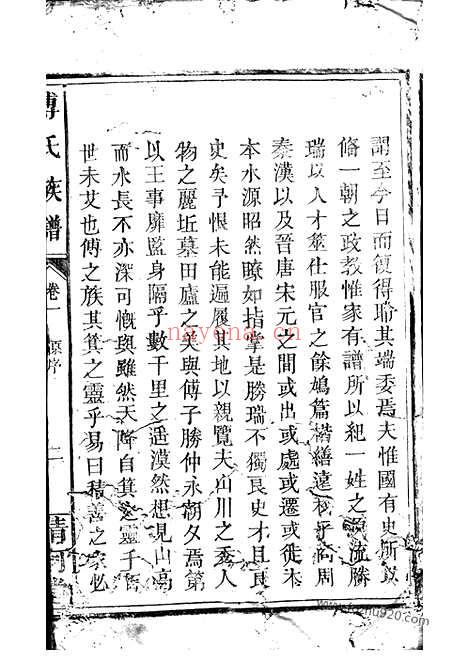 謂至今日而復得聆其端委焉夫惟國有史所以
脩一朝之政教惟家有譜所以紀一姓之源流勝
瑞以人才筮仕服官之餘鳩篇楮繕遠於乎商周
秦漢以及晉唐宋元之間或出或處或遷或徙木
本水源昭然瞭如指掌是勝瑞不獨良史才且良
史矣予恨未能遍履其地以親覽夫山川之秀人
物之麗坵墓田廬之美與傅子勝仲永朝夕焉第
以王事靡盬身隔乎數千里之遥漠然想見山高
而水長不亦深可慨與雖然天降自箕之靈千百
世未艾也傅之族其箕之靈乎易曰積善之家必
傅氏族譜
卷一
原序
二
清
nayona.cn
fozhu920.com